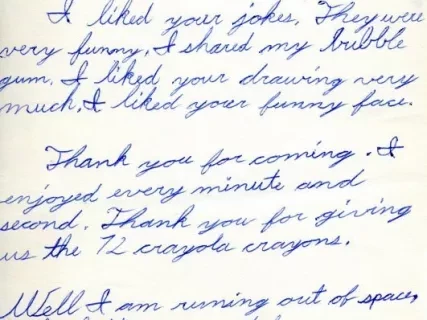 I liked your jokes. They were
very funny. I shared my bubble
gum. I liked your drawing very
much. I liked your funny face.
Thank you for coming. I
enjoyed every minute and
second. Thank you for giving
us the 72 crayola crayons.
Well I am runing out of space,